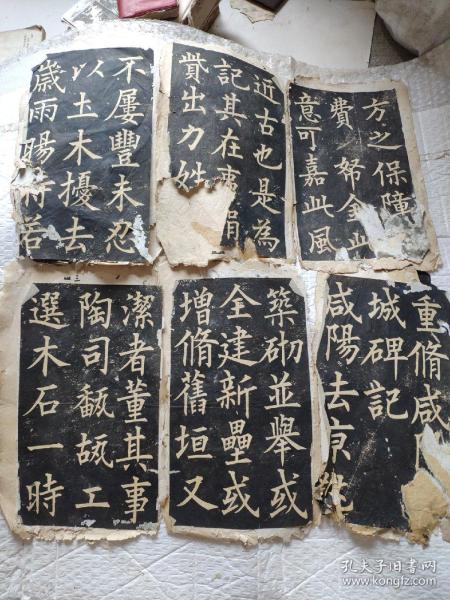 方之保障
費帑金
意可嘉此風
近古也是為
記其在捐
貲出力姓
不屢豐未忍
以土木擾去
歲雨暘時若
重脩咸
城碑記
咸陽去京
築砌並舉或
全建新壘或
增脩舊垣又
潔者董其事
陶司工
選木石一時
孔夫子旧书网
www.kongfz.com